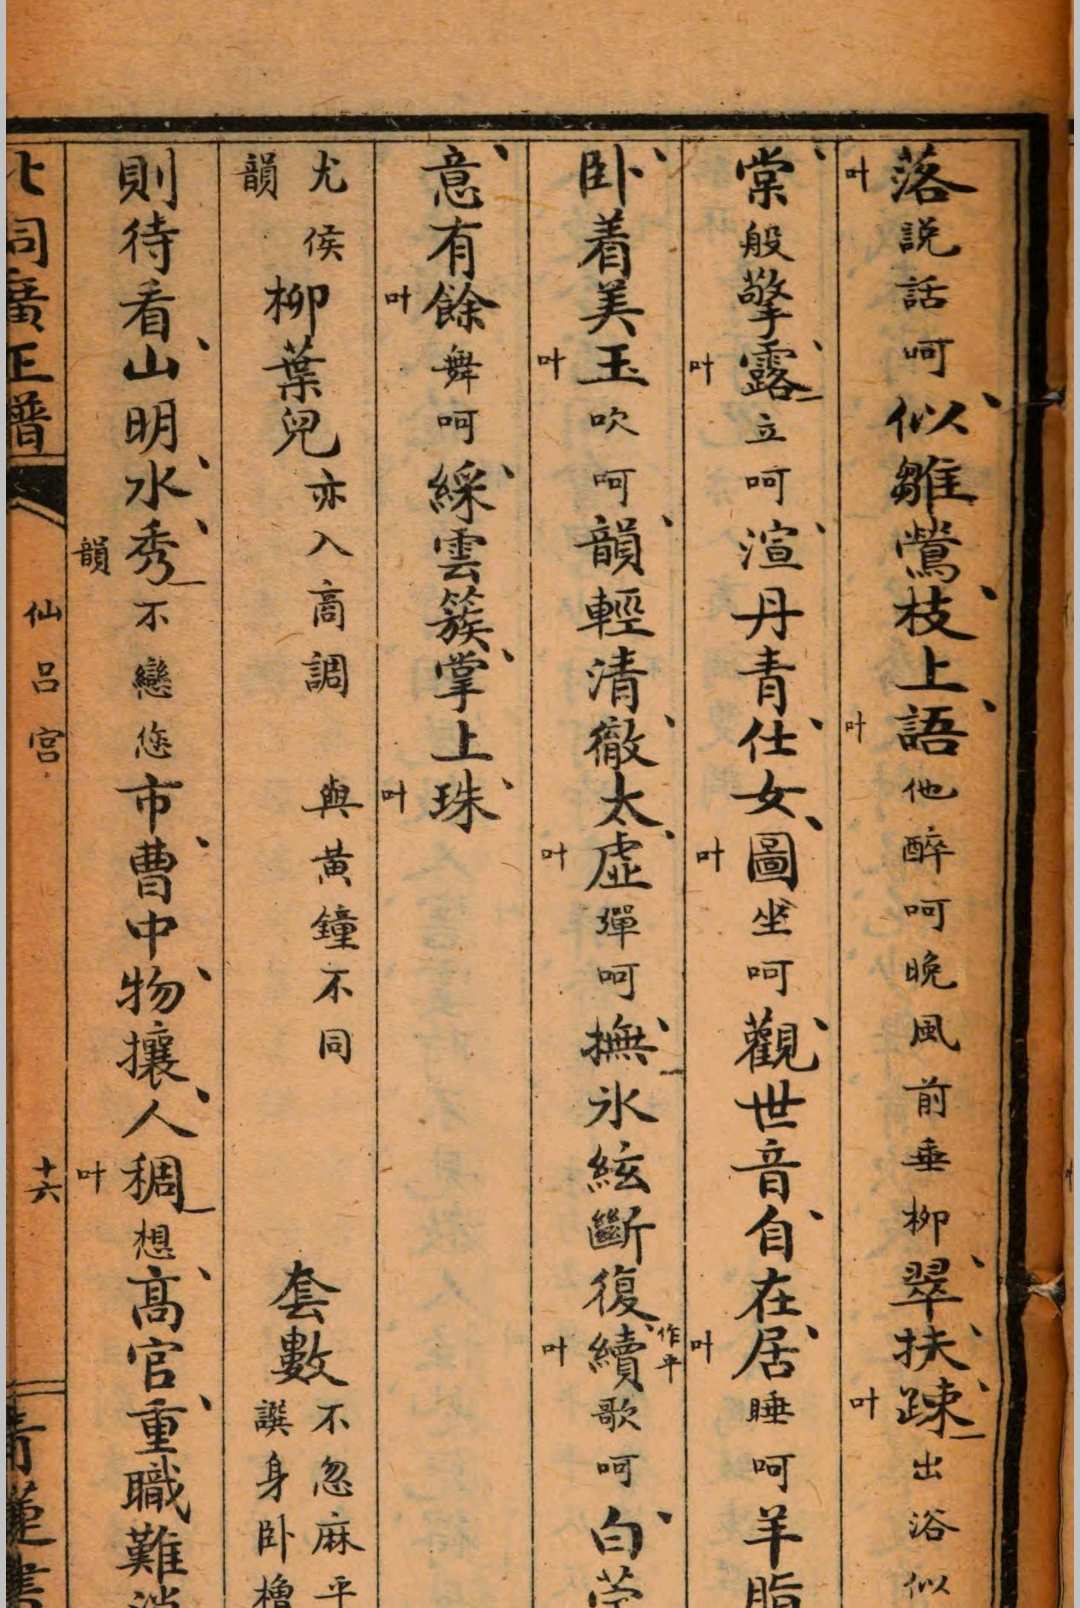 落叶說話呵似雛鶯枝上語叶他醉呵晚風前垂柳翠扶踈叶出浴似
棠般擎露叶立呵渲丹青仕女圖叶坐呵觀世音自在居叶睡呵羊脂
卧着美玉叶吹呵韻輕清徹太虛叶彈呵撫氷絃斷復續作平叶歌呵白
意有餘叶舞呵綵雲簇掌上珠叶
尤侯韻柳葉兒亦入商調　與黃鐘不同　套數不忽麻平
譔身卧櫓
則待看山明水秀韻不戀您市曹中物攘人稠叶想高官重職難消
北詞廣正譜　仙呂宮　十六　青蓮書